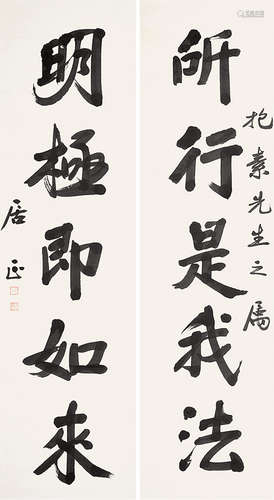 所行是我法
抱素先生之属
明極即如來
居正